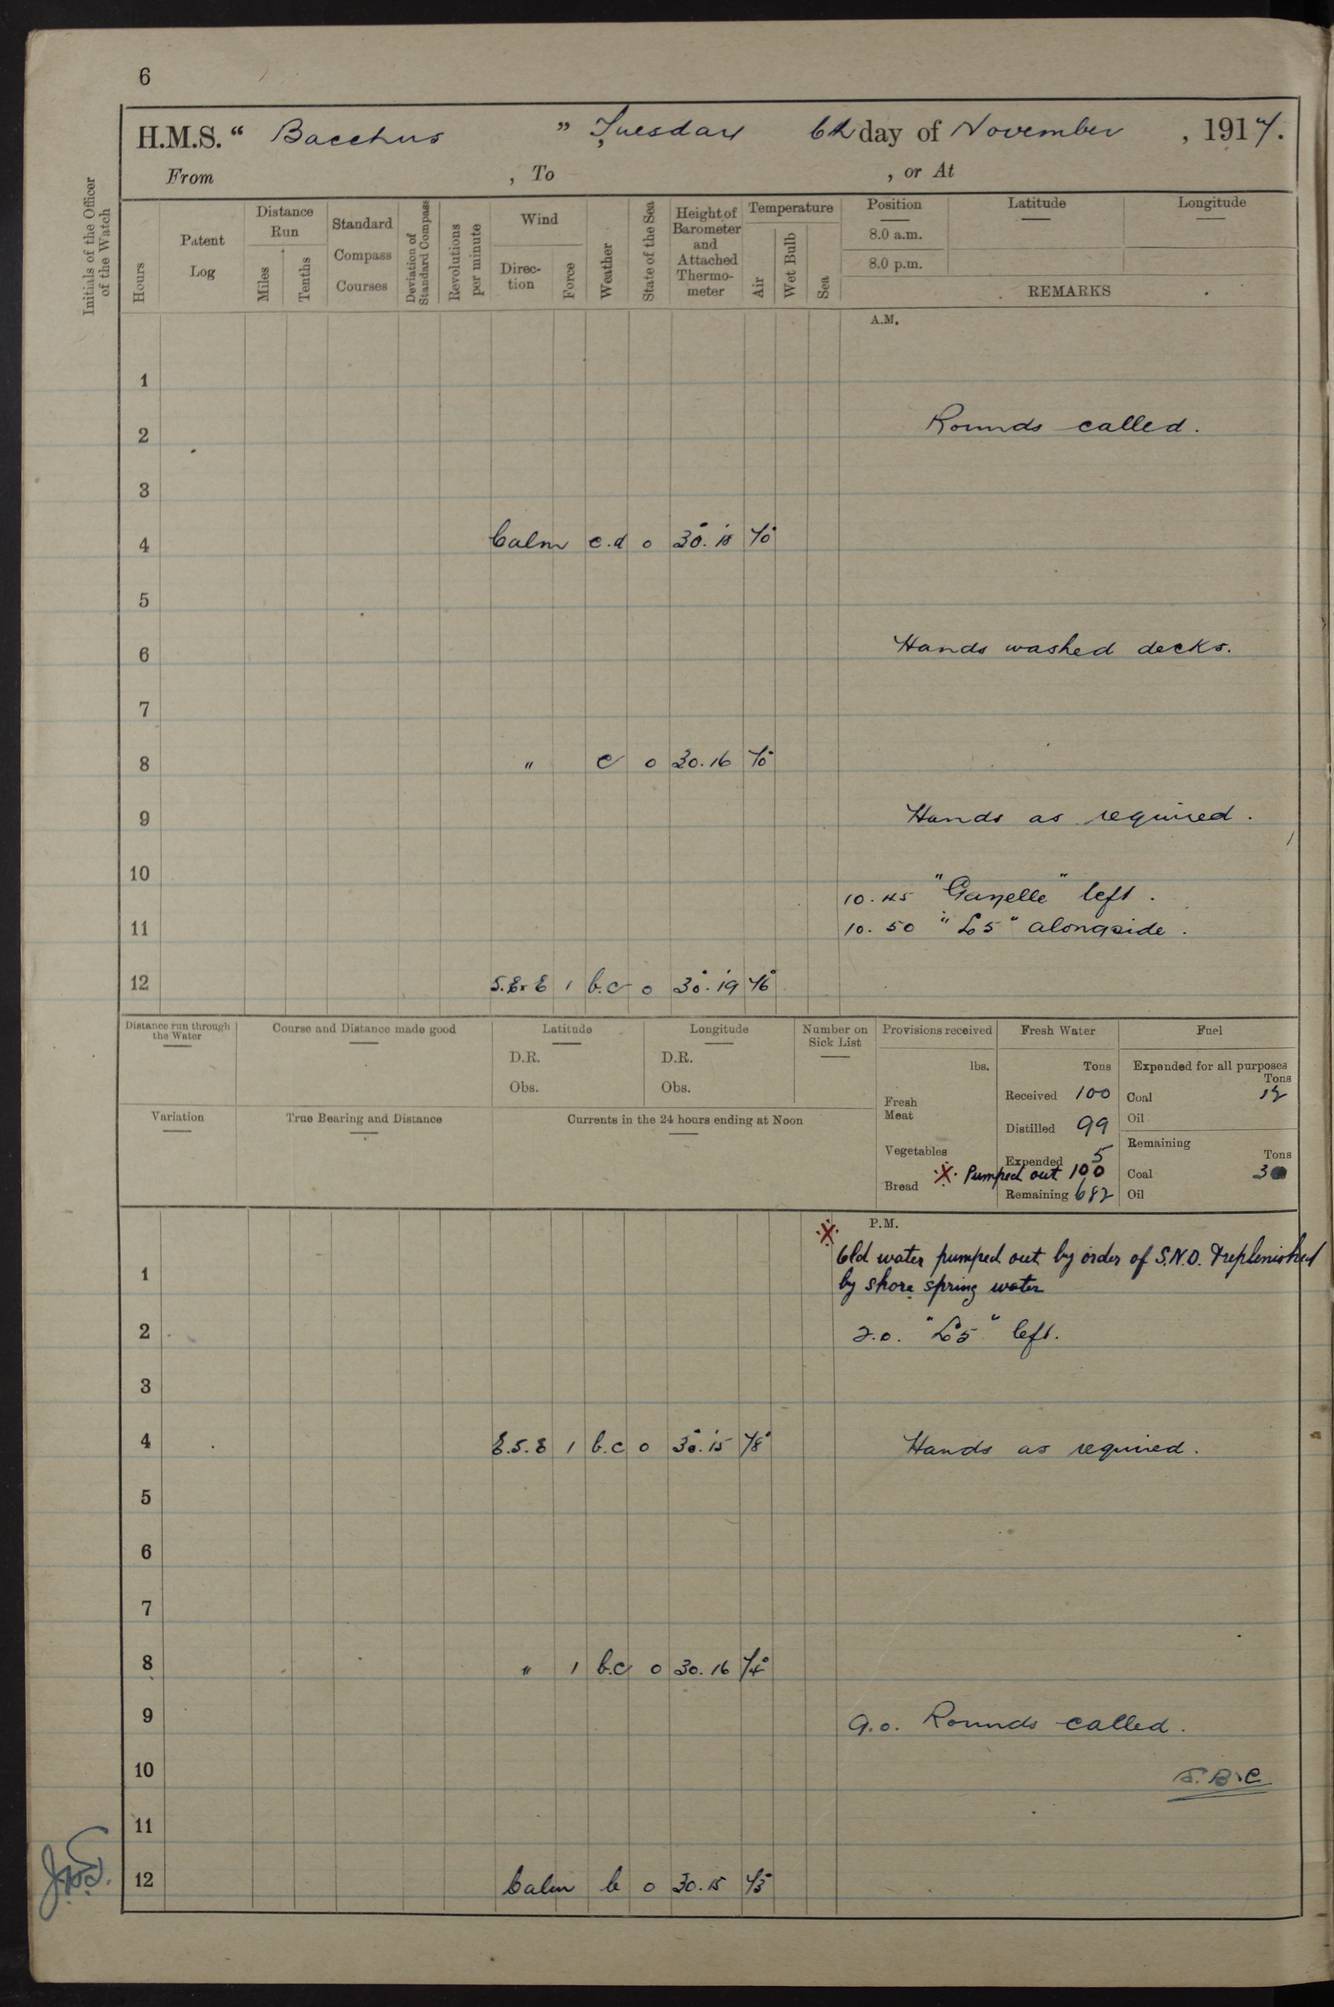 6
H.M.S. “ Bacchus ” Tuesday 6th day of November , 1917.
From , To , or At
Initials of the Officer of the Watch
Hours
Patent Log
Distance Run
Miles
Tenths
Standard Compass Courses
Deviation of Standard Compass
Revolutions per minute
Wind
Direction
Force
Weather
State of the Sea
Height of Barometer and Attached Thermometer
Temperature
Air
Wet Bulb
Sea
Position
Latitude
Longitude
8.0 a.m.
8.0 p.m.
REMARKS
A.M.
1
2 Rounds called.
3
4 Calm c.d 0 30.18 70°
5
6 Hands washed decks.
7
8 " c 0 30.16 70°
9 Hands as required.
10
10.45 "Gazelle" left.
11 10.50 "L5" alongside.
12 1 b.c 0 30.19 76°
Distance run through the Water
Course and Distance made good
Latitude
D.R.
Obs.
Longitude
D.R.
Obs.
Number on Sick List
Provisions received
lbs.
Fresh Meat
Vegetables
Bread
Fresh Water
Tons
Received 100
Distilled 99
Expended 5
※ Pumped out 100
Remaining 682
Fuel
Expended for all purposes
Tons
Coal 12
Oil
Remaining
Tons
Coal
Oil
Variation
True Bearing and Distance
Currents in the 24 hours ending at Noon
P.M.
※ Old water pumped out by order of S.N.O. & replenished
1 by shore spring water
2 2.0. "L5" left.
3
4 E.S.E 1 b.c 0 30.15 78° Hands as required.
5
6
7
8 " 1 b.c 0 30.16 74°
9 9.0. Rounds called.
10
11
12 Calm b 0 30.15 73°